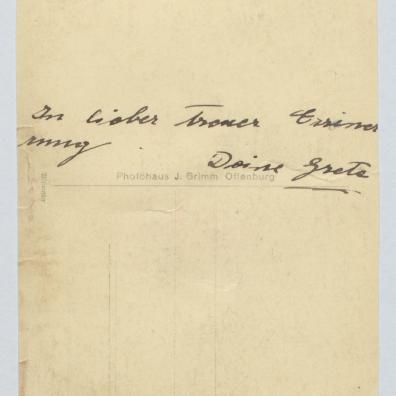 In lieber treuer Erriner
rung
Deine Greta
Photohaus J. Grimm Offenburg